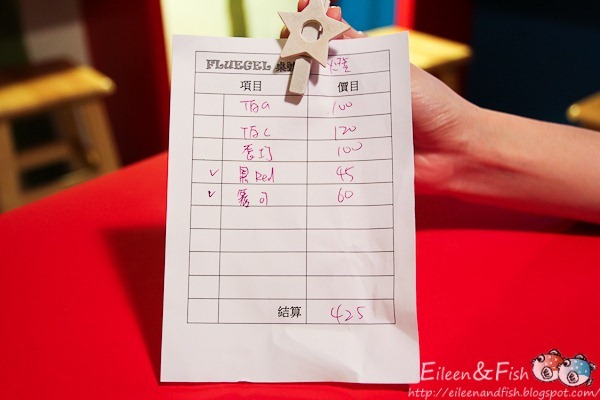 FLUEGEL 桌號
項目 價目
100
120
100
✓ 黑Red 45
✓ 可 60
結算 425
Eileen&Fish
http://eileenandfish.blogspot.com/